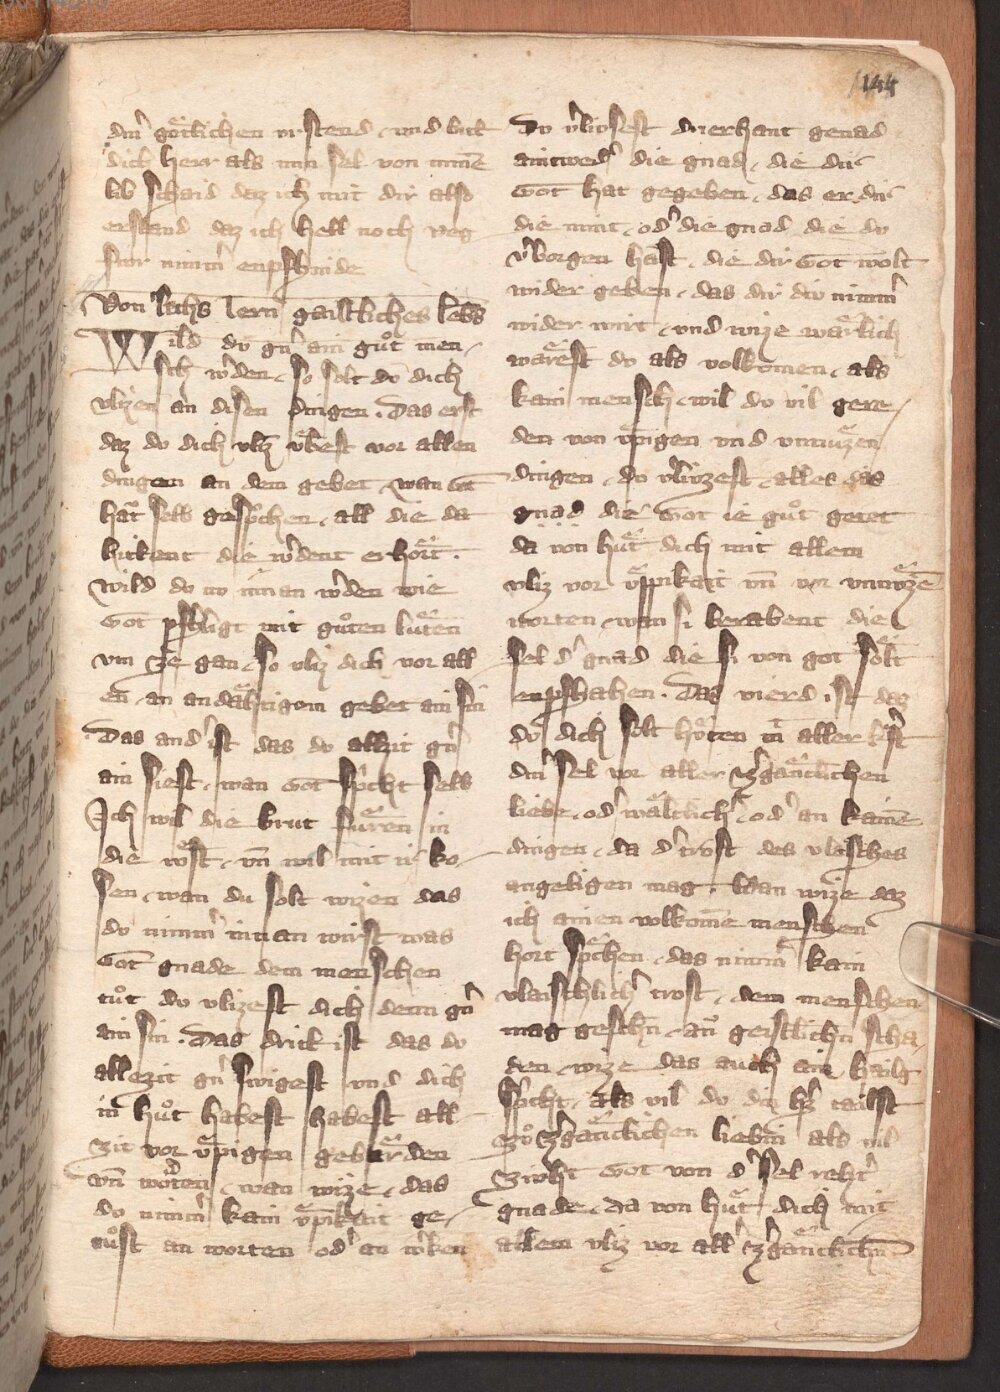 144
din̄ götlichen vrstend vnd bit
dich herr als min sel von minē
lib schaid daz ich mit dir also
erstand daz ich hell noch veg
fiur nimm̄ enpfinde
Von sechs lern gaistliches lebēs
Wild du gn̄ ain guͦt men
sch w̄den so solt du dich
vlizen an disen dingen. Das erst
daz du dich vliz v̈best vor allen
dingen an dem gebet wan got
hat selb gesp̄chen all die da
bittent die w̄dent erhort.
wild du nu innan w̄den wie
Got pfligt mit guͦten lüten
vm ze gan so vliz dich vor all
en an andähtigom gebet ain sin
Das and̄ ist das du allzit gn̄
ain siest wan got sp̄cht selb
Ich wil die brut füren in
die wͦst vn̄ wil mit ir ko
sen wan du solt wizen das
du nimm̄ innan wirst was
Got gnade dem menschen
tuͦt du vlizest dich denn gn̄
ain sin. Das drit ist das du
allezit gn̄ swigest vnd dich
in huͦt habest habest all
zit vor v̈pigen gebärden
vn̄ worten wan wize das
du nimm̄ kain v̈pikait ge
tuͦst an worten od̄ an w̄ken
Du v̄liusest drierhant genad
aintwed̄ die gnad die dir
Got hat gegeben das er dir
die nimt od̄ die gnad die du
v̄borgen hast die dir Got wolt
wider geben das dir diu nimm̄
wider wirt vnd wize wärlich
wärest du als volkomen als
kain mensch wil du vil gere
den von v̈pigen vnd vnnüzen
dingen du v̄liuzest alles das
gnad die Got ie guͦt getet
da von hüt dich mit allem
vliz vor v̈ppikait vn̄ vor vnnüzē
worten wan si berabent die
sel d̄ gnad die si von got solt
enpfhahen. Das vierd ist daz
du dich solt hüten in aller k̄ft
din̄ sel vor aller z̄gänclichen
liebe od̄ wältlich̄ od̄ an kainē
dingen da d̄ trost des vlaisches
angeligen mag. Wan wize daz
ich ainen volkomē menschen
hort sp̄chen das nimm̄ kain
vlaischlich̄ trost dem menschen
mag geschēn an geistlichn̄ scha
den wize das auch ain hailg
sp̄cht als vil du din h̄z tailst
zuͦ z̄gänclichen liebin als vil
ziuht Got von d̄ sel reht̄
gnade da von hüt dich mit
allem vliz vor all̄ z̄gänclichn̄